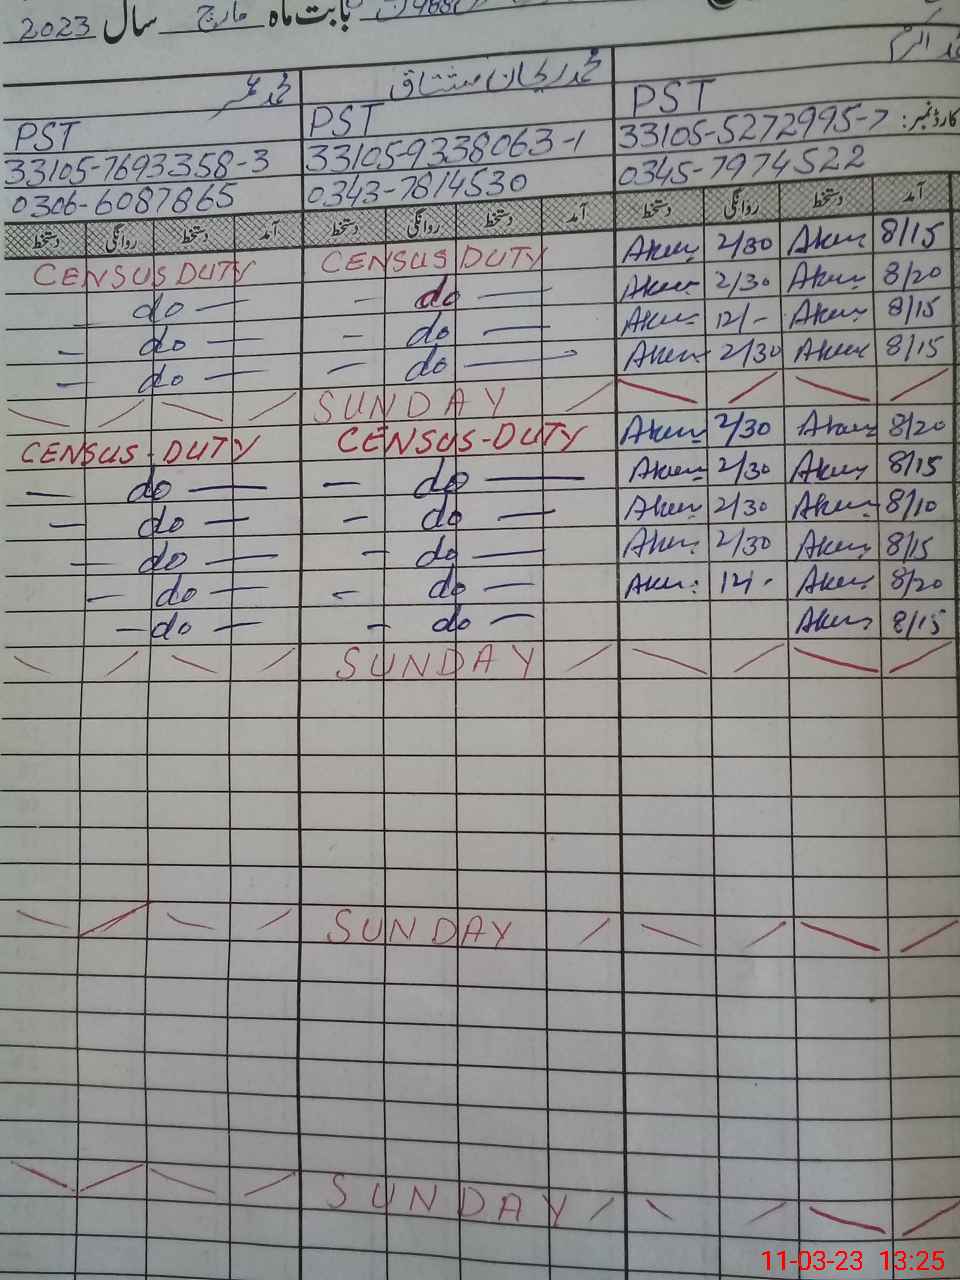 بابت ماہ مارچ سال 2023
محمد اکرم
محمد ریحان مشتاق
محمد عمر
PST PST PST
کارڈ نمبر: 33105-5272995-7 33105-9338063-1 33105-7693358-3
0345-7974522 0343-7814530 0306-6087865
آمد دستخط روانگی دستخط آمد دستخط روانگی دستخط آمد دستخط روانگی دستخط
CENSUS DUTY CENSUS DUTY Akem 2/30 Akem 8/15
— do — — do — Akem 2/30 Akem 8/20
— do — — do — Akem 12/- Akem 8/15
— do — — do — Akem 2/30 Akem 8/15
SUNDAY
CENSUS-DUTY CENSUS-DUTY Akem 2/30 Akem 8/20
— do — — do — Akem 2/30 Akem 8/15
— do — — do — Akem 2/30 Akem 8/10
— do — — do — Akem 2/30 Akem 8/15
— do — — do — Akem 12/- Akem 8/20
— do — — do — Akem 8/15
SUNDAY
SUNDAY
SUNDAY
11-03-23 13:25